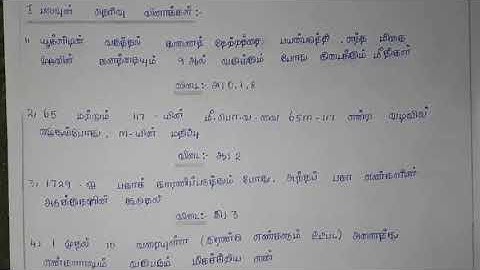 I பலவுள் தெரிவு வினாக்கள் :-
1) யூக்ளிடின் வகுத்தல் துணைத் தேற்றத்தை பயன்படுத்தி, எந்த மிகை
முழுவின் கனத்தையும் 9 ஆல் வகுக்கும் போது கிடைக்கும் மீதிகள்
விடை:- அ) 0, 1, 8
2) 65 மற்றும் 117 - யின் மீ.பொ.வ - வை 65m - 117 என்ற வடிவில்
எழுதும்போது, m - யின் மதிப்பு
விடை:- ஆ) 2
3) 1729 - ஐ பகாக் காரணிப்படுத்தும் போது, அந்தப் பகா எண்களின்
அடுக்குகளின் கூடுதல்
விடை:- இ) 3
4) 1 முதல் 10 வரையுள்ள (இரண்டு எண்களும் உட்பட) அனைத்து
எண்களாலும் வகுபடும் மிகச்சிறிய எண்